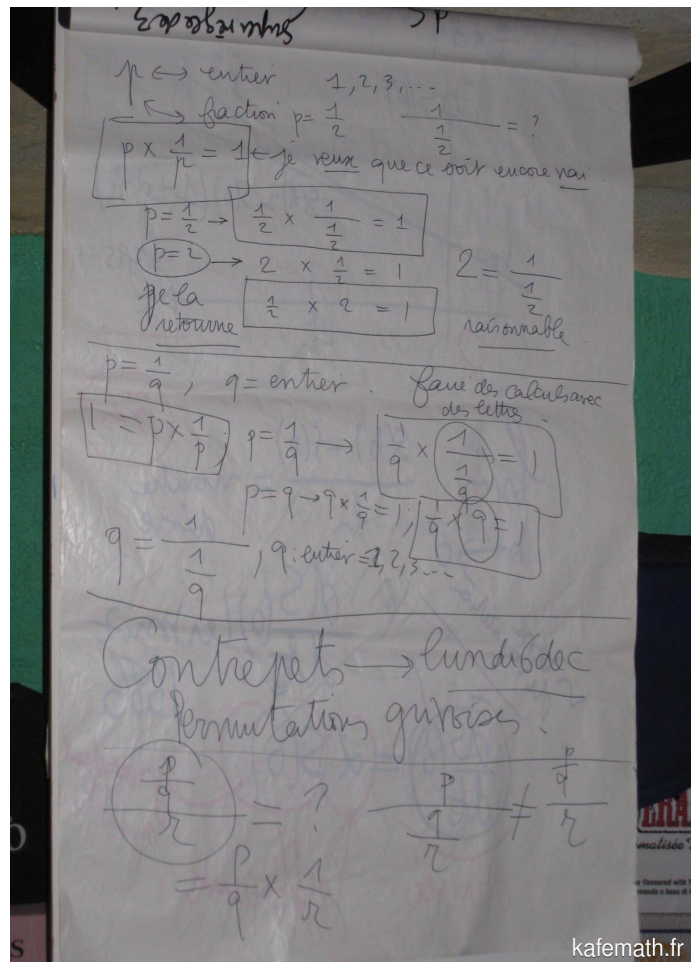 Super règle de 3
p ↔ entier 1, 2, 3, ...
↔ fraction p = 1/2 1/(1/2) = ?
p × 1/p = 1 ← je veux que ce soit encore vrai.
p = 1/2 → 1/2 × 1/(1/2) = 1
p = 2 → 2 × 1/2 = 1 2 = 1/(1/2)
je la retourne 1/2 × 2 = 1 raisonnable.
p = 1/q, q = entier. faire des calculs avec
des lettres.
1 = p × 1/p, p = 1/q → 1/q × 1/(1/q) = 1
p = q → q × 1/q = 1; 1/q × q = 1
q = 1/(1/q), q: entier = 1, 2, 3 ...
Contrepets → lundi 6 dec
Permutations grivoises.
(p/q)/r = ? p/(1/r) ≠ (p/q)/r
= p/q × 1/r
kafemath.fr